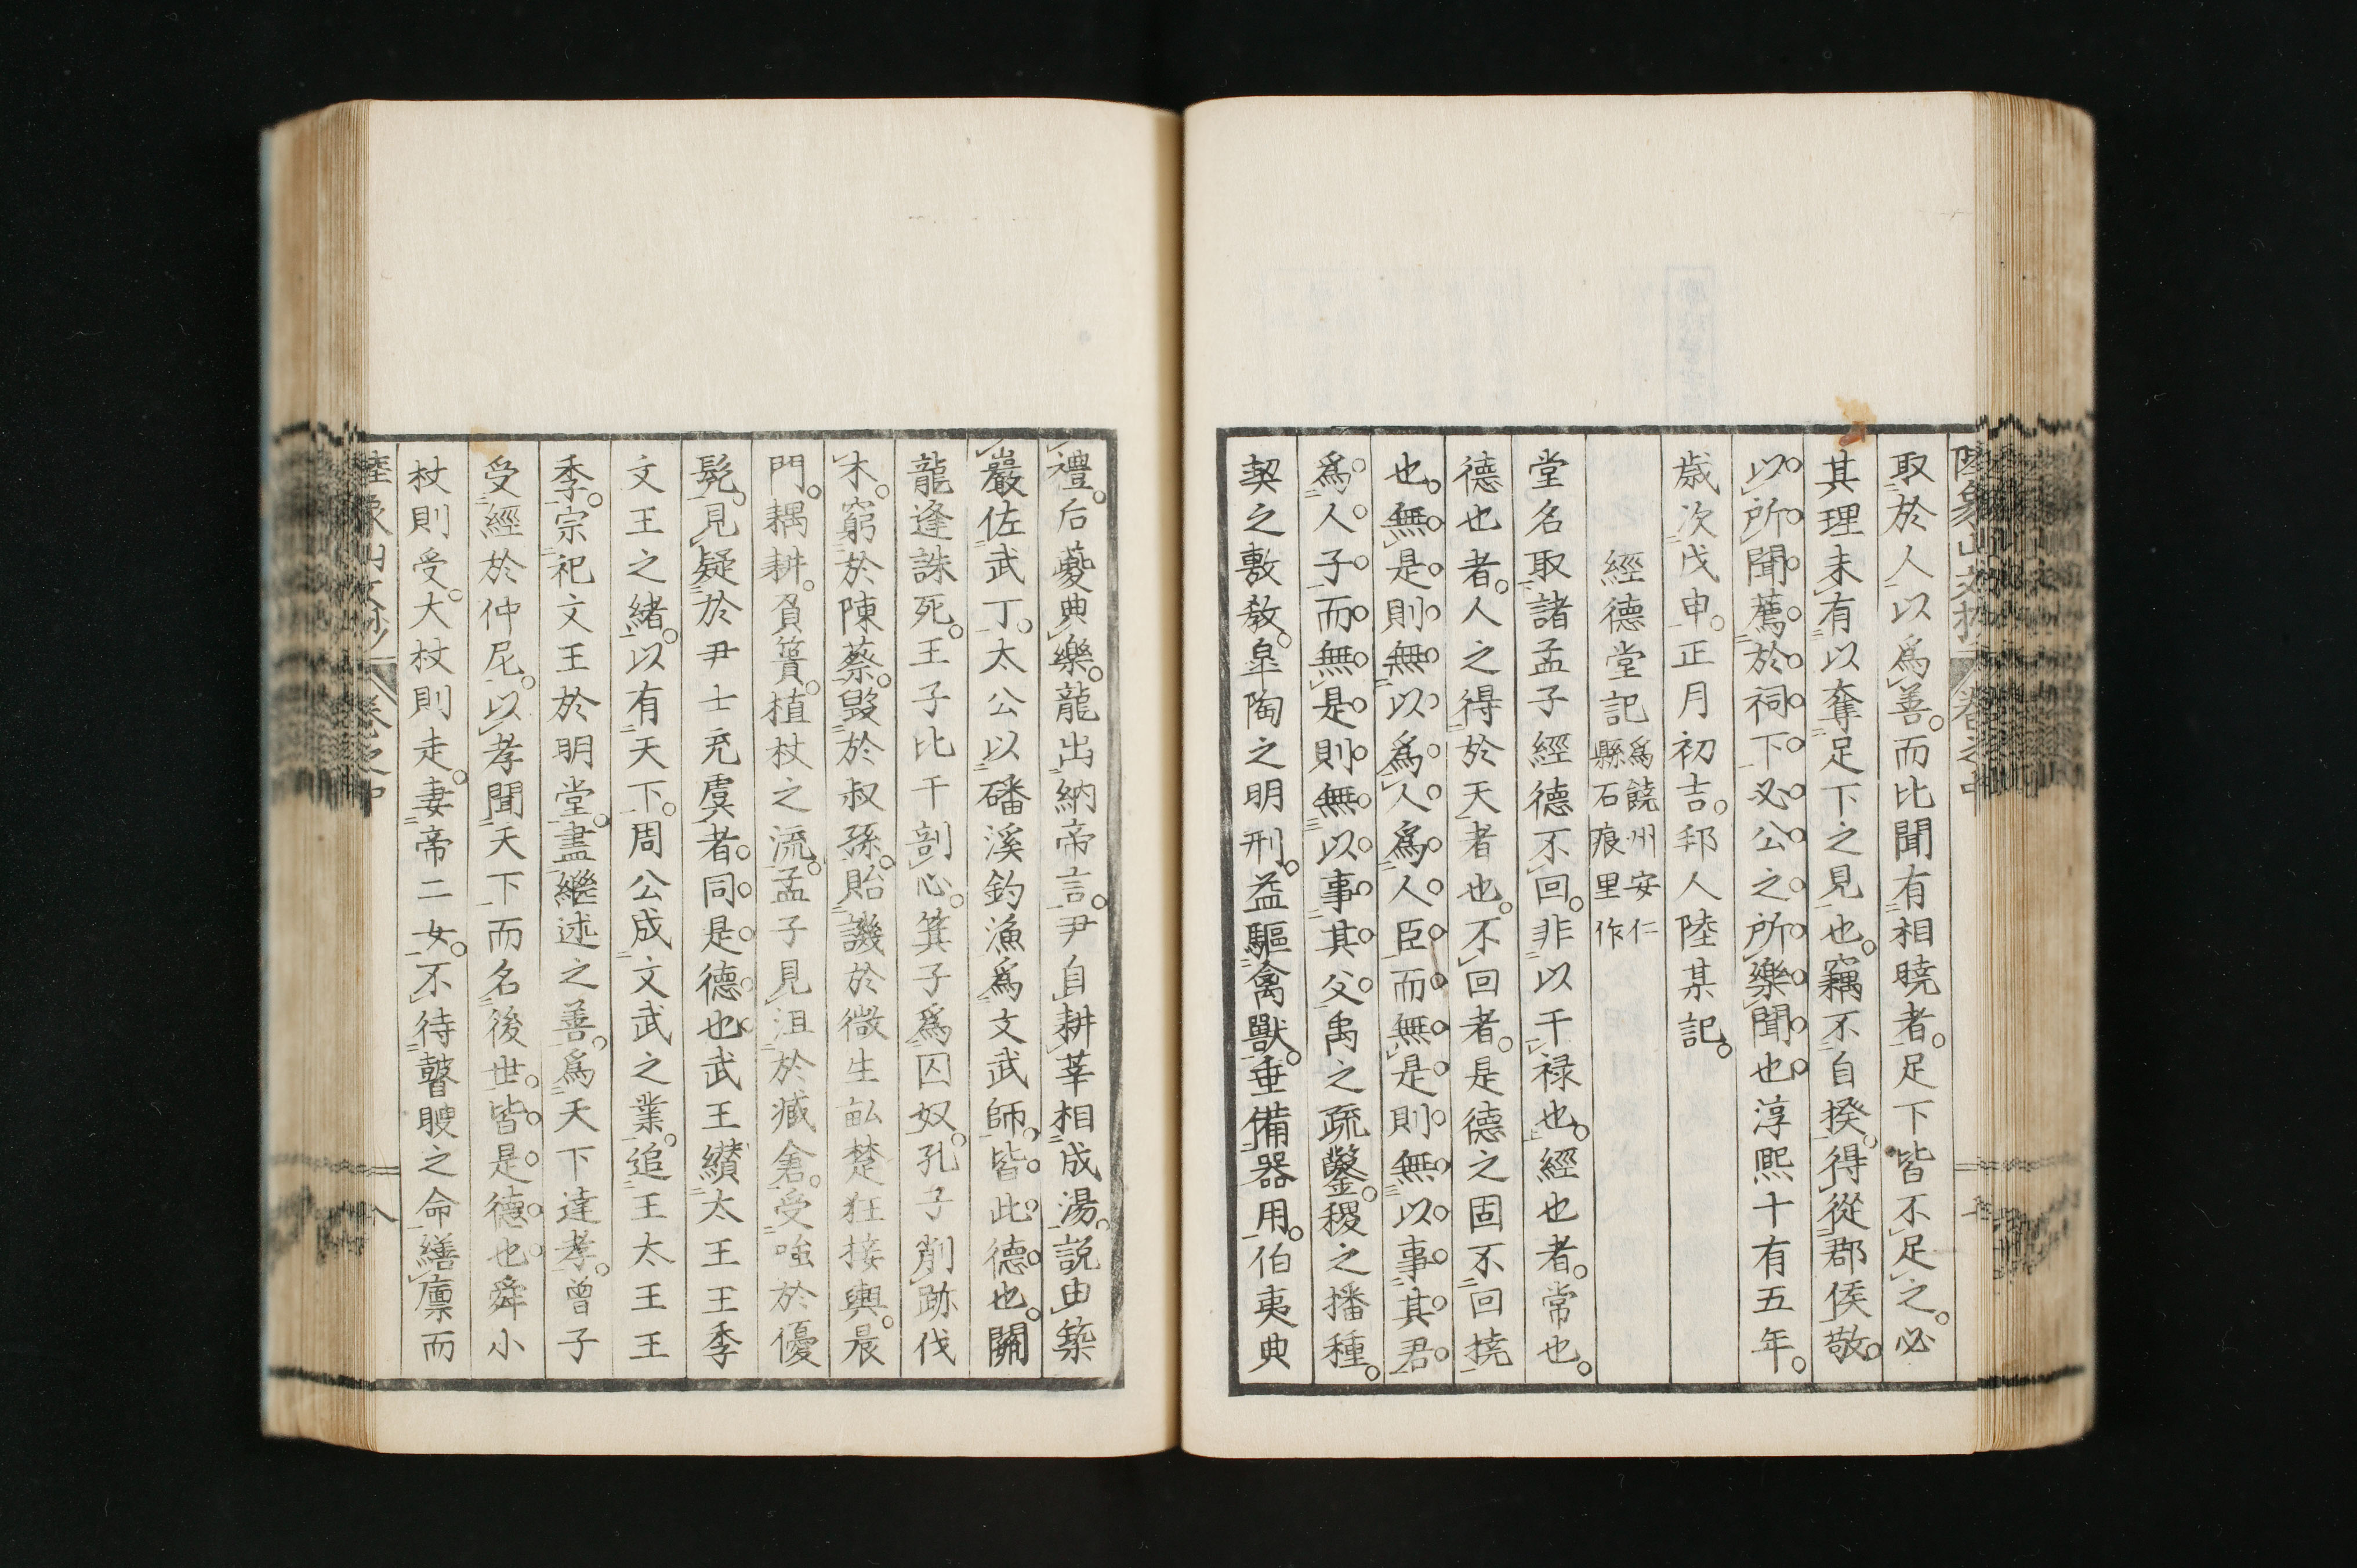 取於人以爲善。而比聞有相曉者。足下皆不足之。必
其理未有以奪足下之見也。竊不自揆。得從郡侯敬。
以所聞薦於祠下必公之所樂聞也淳熙十有五年。
歳次戊申。正月初吉。邦人陸某記。
經德堂記
爲饒州安仁
縣石痕里作
堂名取諸孟子經德不回。非以干禄也。經也者。常也。
德也者。人之得於天者也。不回者。是德之固不回撓
也。無是則無以爲人爲人臣而無是則無以事其君
爲人子而無是則無以事其父禹之疏鑿。稷之播種。
契之敷敎。皐陶之明刑。益驅禽獸。垂備器用。伯夷典
禮。后夔典樂。龍出納帝言。尹自耕莘相成湯。説由築
巖佐武丁。太公以磻溪釣漁爲文武師。皆此德也。關
龍逢誅死。王子比干剖心。箕子爲囚奴。孔子削跡伐
木。窮於陳蔡。毀於叔孫。貽譏於微生畝楚狂接輿。晨
門。耦耕。負簣。植杖之流。孟子見沮於臧倉。受嗤於優
髡。見疑於尹士充虞者。同是德也武王纘太王王季
文王之緒。以有天下。周公成文武之業。追王太王王
季。宗祀文王於明堂。盡繼述之善。爲天下達孝。曾子
受經於仲尼。以孝聞天下而名後世。皆是德也舜小
杖則受。大杖則走。妻帝二女。不待瞽瞍之命繕廩而